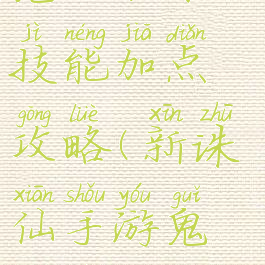 jì néng jiā diǎn
技能加点
gōng lüè xīn zhū
攻略(新诛
xiān shǒu yóu guǐ
仙手游鬼